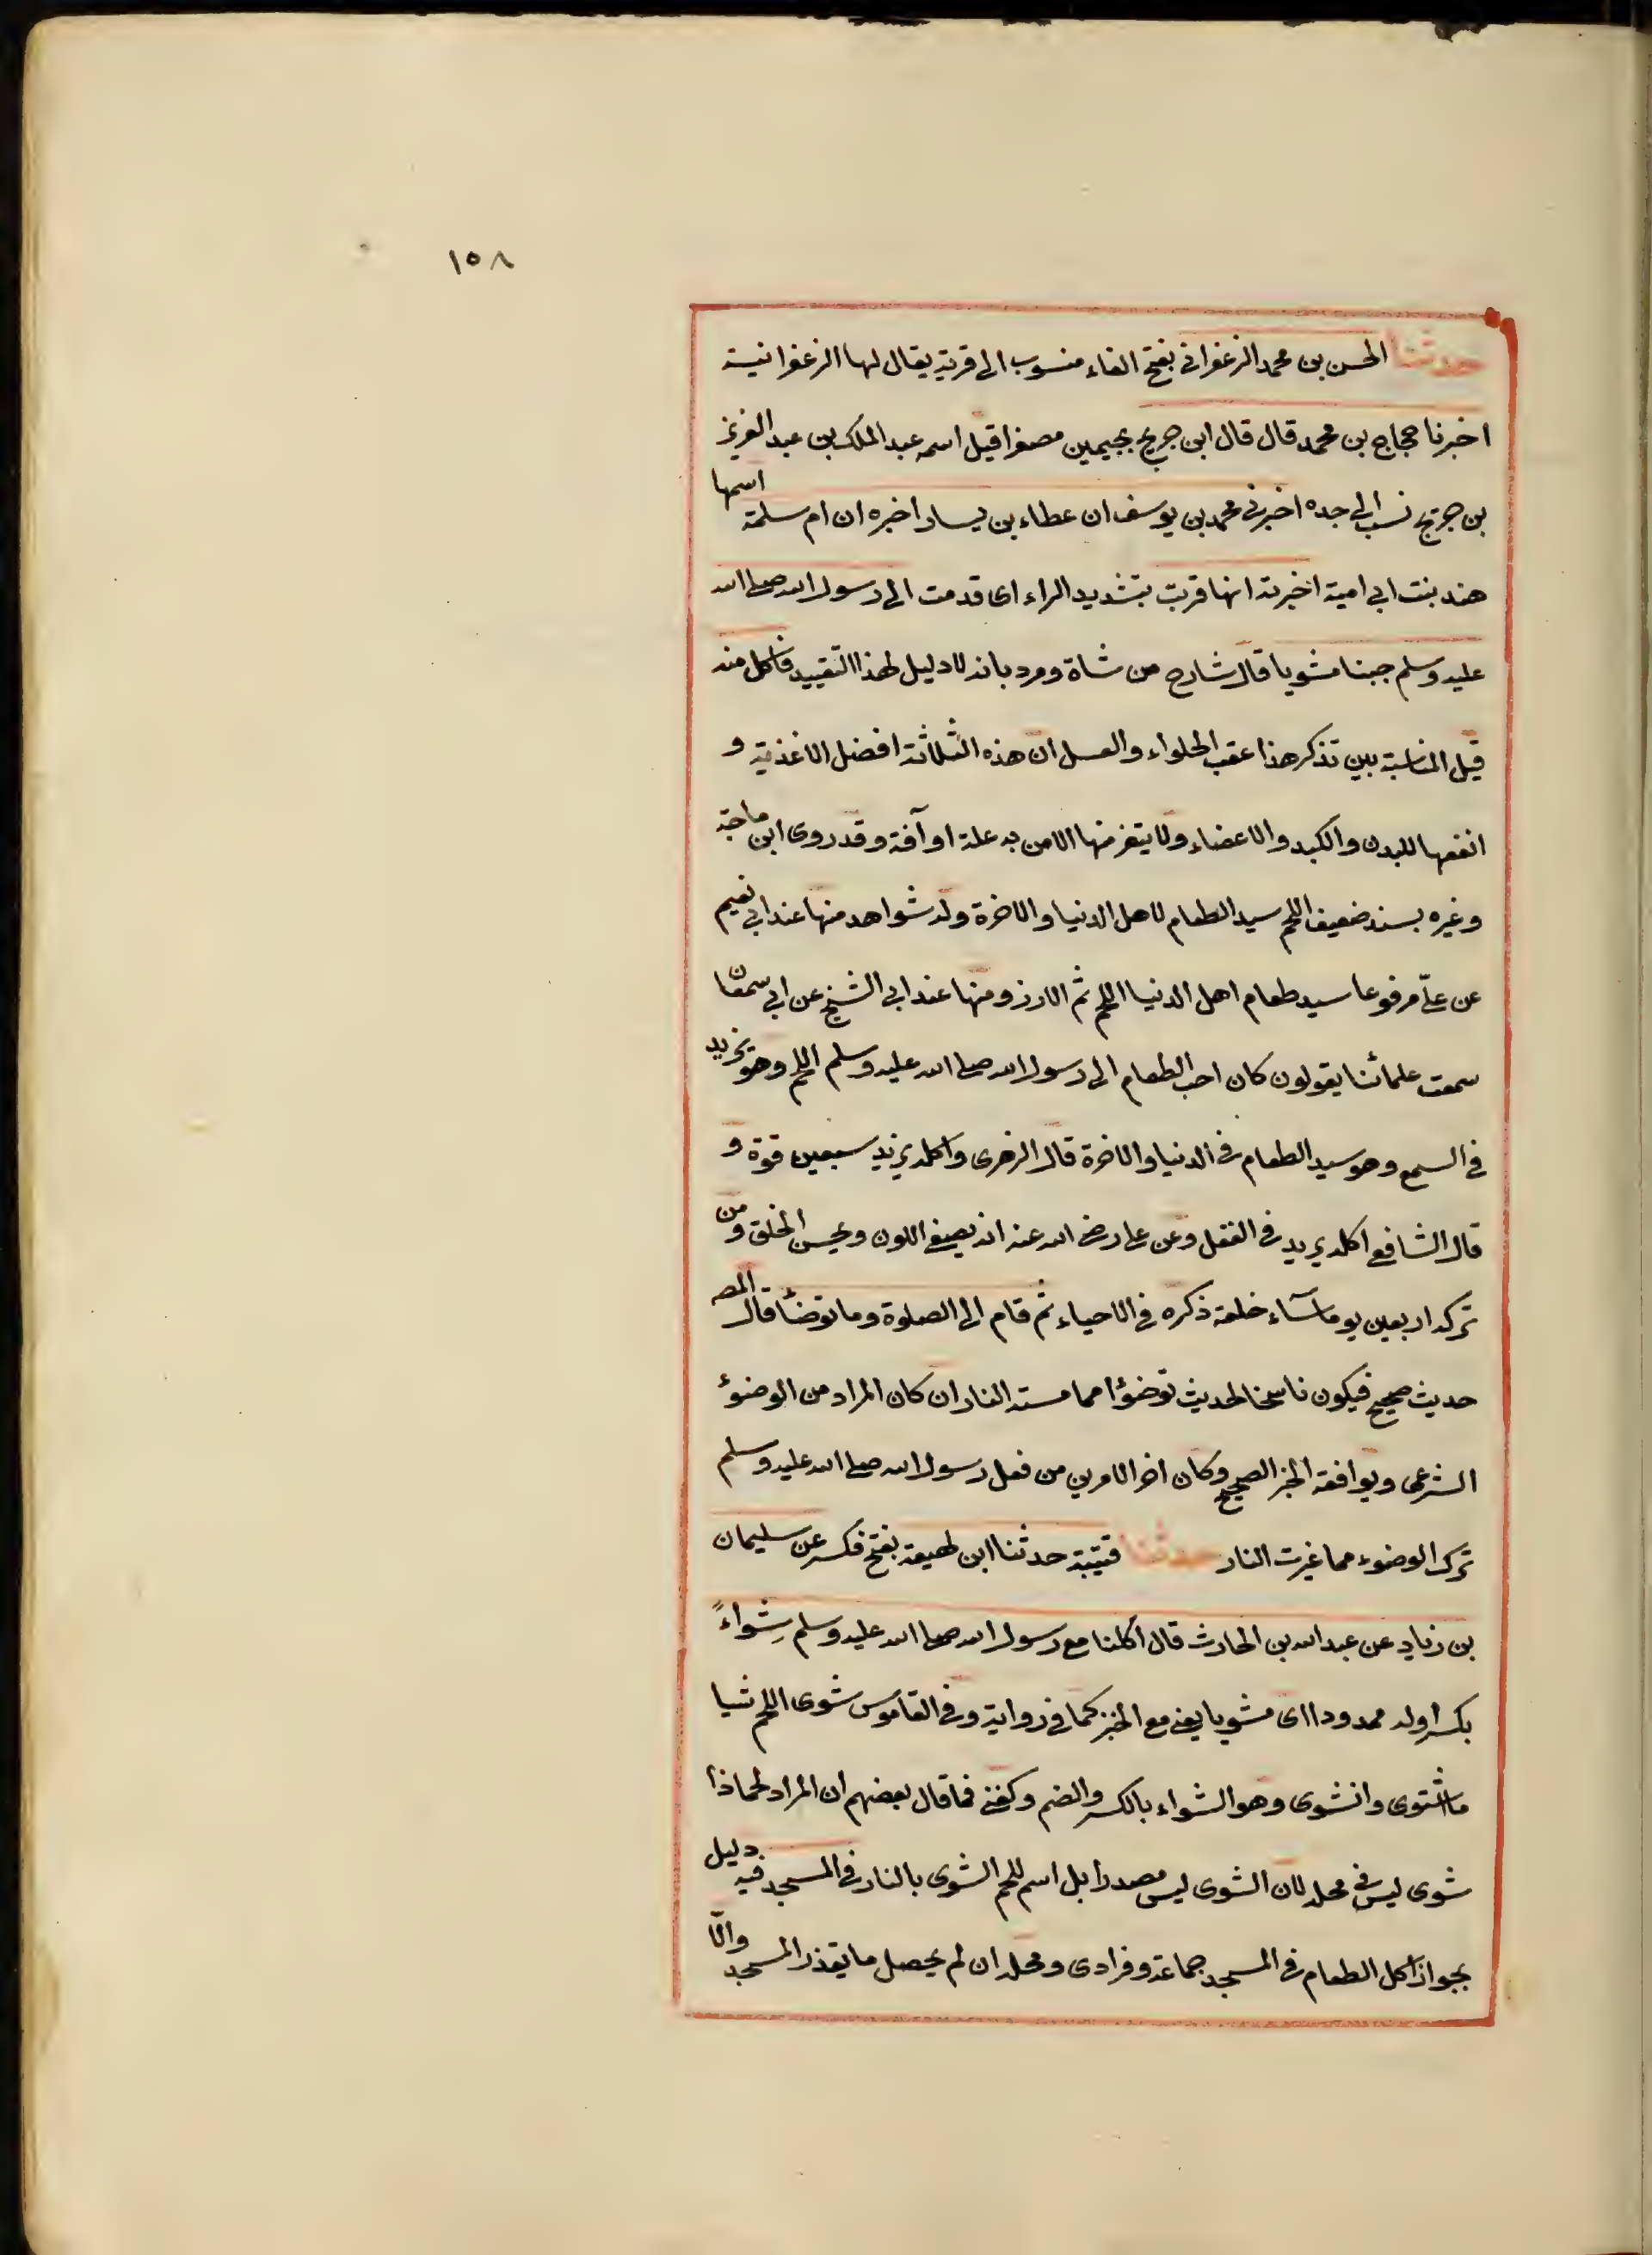 ١٥٨
حدثنا الحسن بن محمد الزعفرانى بفتح الفاء منسوب الى قرية يقال لها الزعفرانية
اخبرنا حجاج بن محمد قال قال ابن جريج بجيمين مصغرا قيل اسمه عبد الملك بن عبد العزيز
بن جريج نسب الى جده اخبرنى محمد بن يوسف ان عطاء بن يسار اخبره ان ام سلمة اسمها
هند بنت ابى امية اخبرته انها قربت بتشديد الراء اى قدمت الى رسول الله صلى الله
عليه وسلم جبنا مشويا قال شارح من شاة ومرد بانه لا دليل لهذا التقييد فاكل منه
قيل المناسبة بين تذكر هذا عقب الحلواء والعسل ان هذه الثلاثة افضل الاغذية و
انفعها للبدن والكبد والاعضاء ولا يتفر منها الا من به علة او آفة وقد روى ابن ماجة
وغيره بسند ضعيف اللحم سيد الطعام لاهل الدنيا والاخرة وله شواهد منها عند ابى نعيم
عن علىّ مرفوعا سيد طعام اهل الدنيا اللحم ثم الارز ومنها عند ابى الشيخ عن ابى سمعان
سمعت علمائنا يقولون كان احب الطعام الى رسول الله صلى الله عليه وسلم اللحم وهو يزيد
فى السمع وهو سيد الطعام فى الدنيا والاخرة قال الزهرى واكله يزيد سبعين قوة و
قال الشافعى اكله يزيد فى العقل وعن على رضى الله عنه انه يصفى اللون ويحسن الخلق ومن
تركه اربعين يوما سآء خلقه ذكره فى الاحياء ثم قام الى الصلوة وما توضأ قال المص
حديث صحيح فيكون ناسخا لحديث توضؤا مما مسته النار ان كان المراد من الوضوء
الشرعى ويوافقه الخبر الصحيح وكان اخر الامرين من فعل رسول الله صلى الله عليه وسلم
ترك الوضوء مما غيرت النار حدثنا قتيبة حدثنا ابن لهيعة بفتح فكسر عن سليمان
بن زياد عن عبد الله بن الحارث قال اكلنا مع رسول الله صلى الله عليه وسلم شِواءً
بكسر اوله ممدودا اى مشويا يعنى مع الخبز كما فى رواية وفى القاموس شوى اللحم شيا
فاشتوى وانشوى وهو الشواء بالكسر والضم وكغنى فما قال بعضهم ان المراد لحما ذا
شوى ليس فى محله لان الشوى ليس مصدرا بل اسم للحم الشوى بالنار فى المسجد فيه دليل
بجواز اكل الطعام فى المسجد جماعة وفرادى ومحله ان لم يحصل ما يقذر المسجد والّا